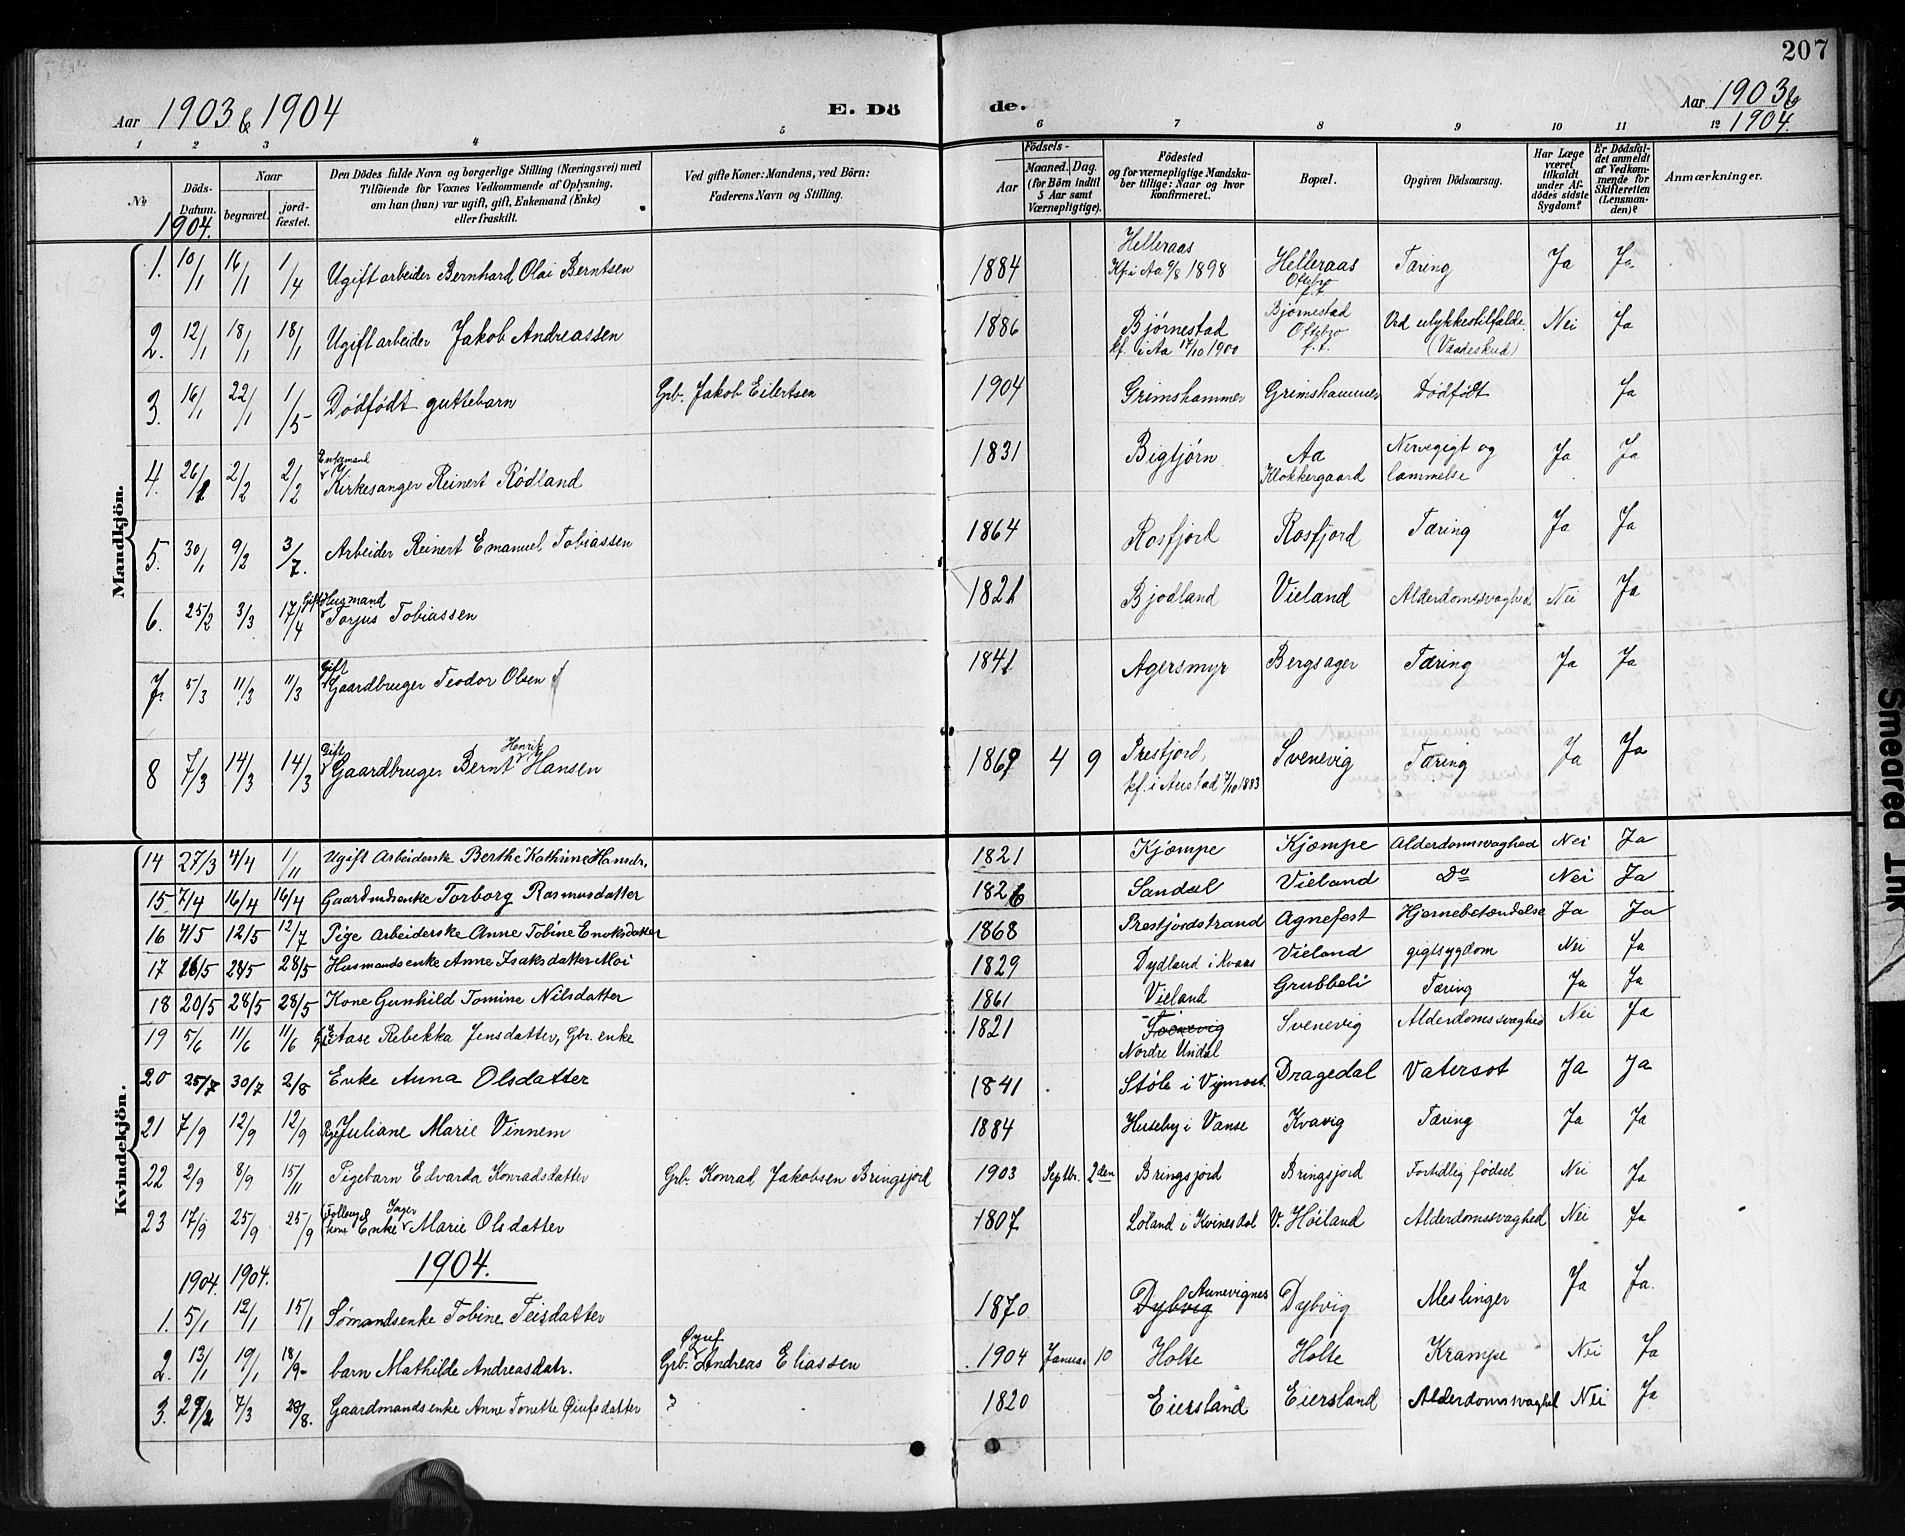 207
Aar 1903 & 1904
E. Dö
de.
Aar 1903 &
1904.
1 2 3 4 5 6 7 8 9 10 11 12
No
Döds-Datum.
Naar
begravet.
jord-fæstet.
Den Dödes fulde Navn og borgerlige Stilling (Næringsvei) med
Tilföiende for Voxnes Vedkommende af Oplysning,
om han (hun) var ugift, gift, Enkemand (Enke)
eller fraskilt.
Ved gifte Koner: Mandens, ved Börn:
Faderens Navn og Stilling.
Födsels-
Aar
Maaned. Dag.
(for Börn indtil
5 Aar samt
Værnepligtige).
Födested
og for værnepligtige Mandska-
ber tillige: Naar og hvor
konfirmeret.
Bopæl.
Opgiven Dödsaarsag.
Har Læge
været
tilkaldt
under Af-
dödes sidste
Sygdom?
Er Dödsfal-
det anmeldt
af Vedkom-
mende for
Skifteretten
(Lensman-
den)?
Anmærkninger.
1904.
Mandkjön.
1. 10/1 16/1 1/4 Ugift arbeider Bernhard Olai Berntsen 1884 Helleraas Kf. i Aa 9/8 1898 Helleraas Oftebro f.f. Tæring Ja Ja
2. 12/1 18/1 18/1 Ugift arbeider Jakob Andreassen 1886 Bjørnestad kf. i Aa 17/10 1900 Bjørnestad Oftebro f.f. Ved ulykkestilfælde (Vaadeskud) Nei Ja
3. 16/1 22/1 1/5 Dödfödt guttebarn Grb. Jakob Eilertsen 1904 Grimshammer Grimshammer Dödfödt Ja
4. 26/1 2/2 2/2 Enkemand Kirkesanger Reinert Rødland 1831 Bigtjørn Aa Klokkergaard Nervegigt og lammelse Ja Ja
5. 30/1 9/2 3/7. Arbeider Reinert Emanuel Tobiassen 1864 Rosfjord Rosfjord Tæring Ja Ja
6. 25/2 3/3 17/4 Gift Husmand Torjus Tobiassen 1821 Bjodland Vieland Alderdomssvaghed Nei Ja
7. 5/3 11/3 11/3 Gift Gaardbruger Teodor Olsen 1841 Agersmyr Bergsager Tæring Ja Ja
8 7/3 14/3 14/3 Gift Gaardbruger Bernt Henrik Hansen 1869 4 9 Prestjord, kf. i Austad 7/10 1883 Svenevig Tæring Ja Ja
Kvindekjön.
14 27/3 4/4 1/11 Ugift Arbeiderske Berthe Kathrine Hansdr. 1821 Kjæmpe Kjæmpe Alderdomsvaghed Nei Ja
15 7/4 16/4 16/4 Gaardmdsenke Torborg Rasmusdatter 1826 Sandal Vieland Do Nei Ja
16 4/5 12/5 12/7 Pige Arbeiderske Anne Tobine Enoksdatter 1868 Prestjordstrand Agnefest Hjernebetændelse Ja Ja
17 16/5 28/5 28/5 Husmandsenke Anne Isaksdatter Moi 1829 Dydland i Kvaas Vieland gigtsygdom Nei Ja
18 20/5 28/5 28/5 Kone Gunhild Tomine Nilsdatter 1861 Vieland Grubbeli Tæring Ja Ja
19 5/6 11/6 11/6 Aase Rebekka Jensdatter, Gbr. enke 1821 Nordre Undal Svenevig Alderdomssvaghed Nei Ja
20 25/7 30/7 2/8 Enke Anna Olsdatter 1841 Støle i Vijmost. Dragedal Vatersot Ja Ja
21 7/9 12/9 12/9 Pige Juliane Marie Vinnem 1884 Huseby i Vanse Kvavig Tæring Ja Ja
22 2/9 8/9 15/11 Pigebarn Edvarda Konradsdatter Grb. Konrad Jakobsen Bringsjord 1903 Septbr. 2den Bringsjord Bringsjord Fortidlig fødsel Nei Ja
23 17/9 25/9 25/9 Enke Inger Marie Olsdatter 1807 Løland i Kvinesdal V. Høiland Alderdomssvaghed Nei Ja
1904.
1904. 1904.
1. 5/1 12/1 15/1 Sømandsenke Tobine Teisdatter 1870 Dybvig Aunevignes Dybvig Meslinger Ja Ja
2. 13/1 19/1 18/9 barn Mathilde Andreasdatr. Grb. Øyuf Andreas Eliassen 1904 Januar 10 Holte Holte Krampe Nei Ja
3. 29/2 7/3 28/8. Gaardmandsenke Anne Tonette Øiufsdatter 1820 Eiersland Eiersland Alderdomssvaghed Nei Ja
Smeared Ink